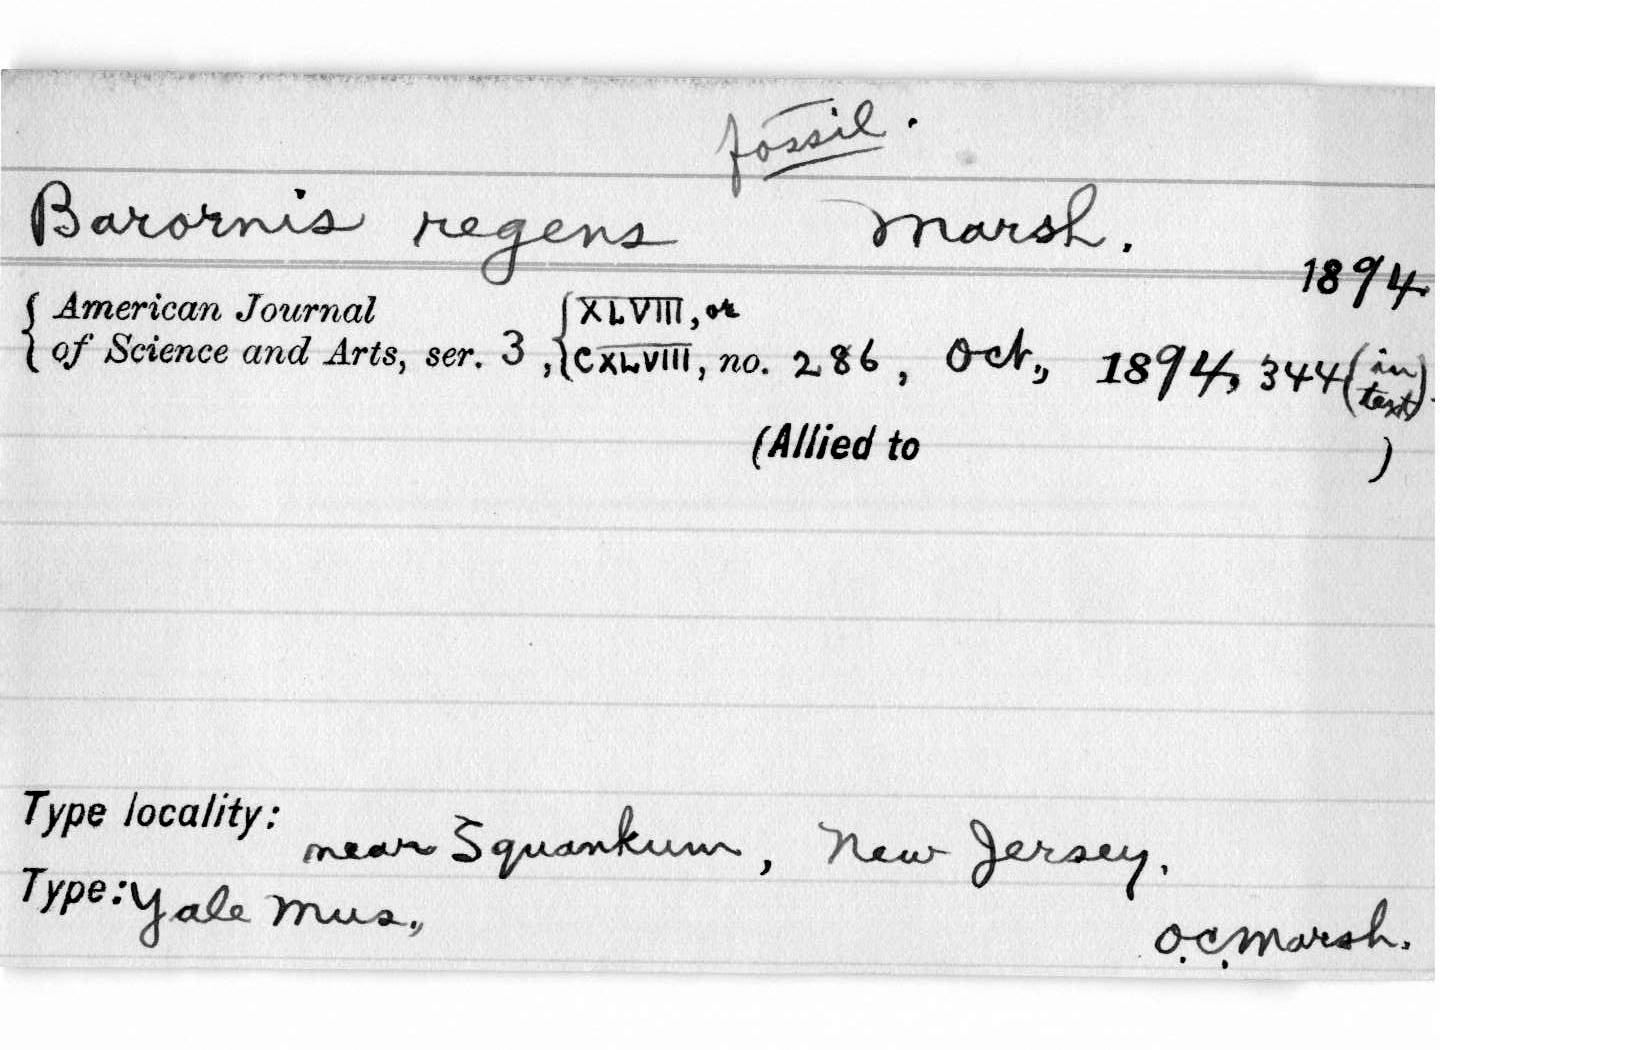 fossil.
Barornis regens Marsh.
1894
{ American Journal { XLVIII, or
{ of Science and Arts, ser. 3, { CXLVIII, no. 286, Oct., 1894, 344 (in text).
(Allied to )
Type locality: near Squankum, New Jersey.
Type: Yale Mus.,
O.C. Marsh.